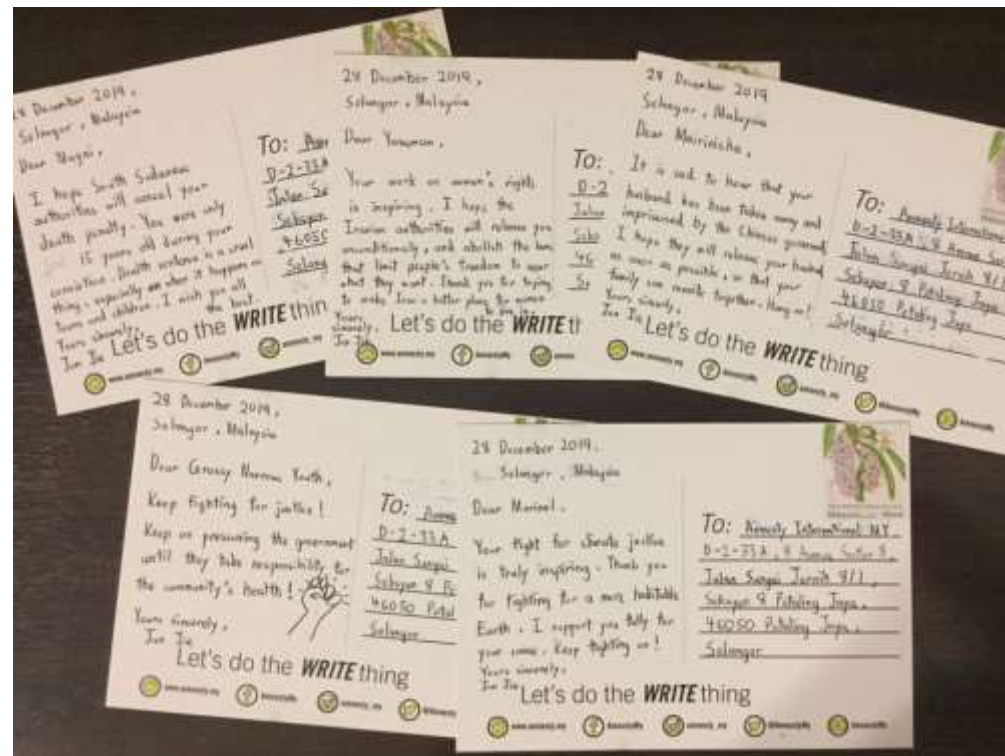 28 December 2019,
Selangor, Malaysia
Dear Magai,
I hope South Sudanese
authorities will cancel your
death penalty. You were only
15 years old during your
conviction. Death sentence is a cruel
thing, especially when it happens on
teens and children. I wish you all
the best
Yours sincerely,
Jun Jie
Let's do the WRITE thin
To:
D-2-33A
Jalan Su
Seksyen
46050
Selang
28 December 2019,
Selangor, Malaysia
Dear Yasaman,
Your work on women's rights
is inspiring. I hope the
Iranian authorities will release you
unconditionally, and abolish the laws
that limit people's freedom to wear
what they want. Thank you for trying
to make Iran a better place for women
Yours,
sincerely,
Jun Jie
Let's do the WRITE t
To:
D-2
Jalan
46
28 December 2019
Selangor, Malaysia
Dear Mairinisha,
It is sad to hear that your
husband has been taken away and
imprisoned by the Chinese government.
I hope they will release your husband
as soon as possible, so that your
family can reunite together. Hang on!
Yours sincerely,
Jun Jie
Let's do the WRITE thing
To: Amnesty International
D-2-33A, 8 Avenue
Jalan Sungai Jernih 8/1
Seksyen 8 Petaling Jaya
46050 Petaling Jaya
Selangor
28 December 2019,
Selangor, Malaysia
Dear Grassy Narrows Youth,
Keep fighting for justice!
Keep on pressuring the government
until they take responsibility for
the community's health!
Yours sincerely,
Jun Jie
Let's do the WRITE thing
To:
D-2-33A
Jalan Sungai
Seksyen 8 Pe
46050 Petal
Selangor
28 December 2019,
Selangor, Malaysia
Dear Marinel,
Your fight for climate justice
is truly inspiring. Thank you
for fighting for a more habitable
Earth. I support you fully for
your cause. Keep fighting on!
Yours sincerely,
Jun Jie
Let's do the WRITE thing
To: Amnesty International MY
D-2-33A, 8 Avenue
Jalan Sungai Jernih 8/1,
Seksyen 8 Petaling Jaya,
46050 Petaling Jaya,
Selangor